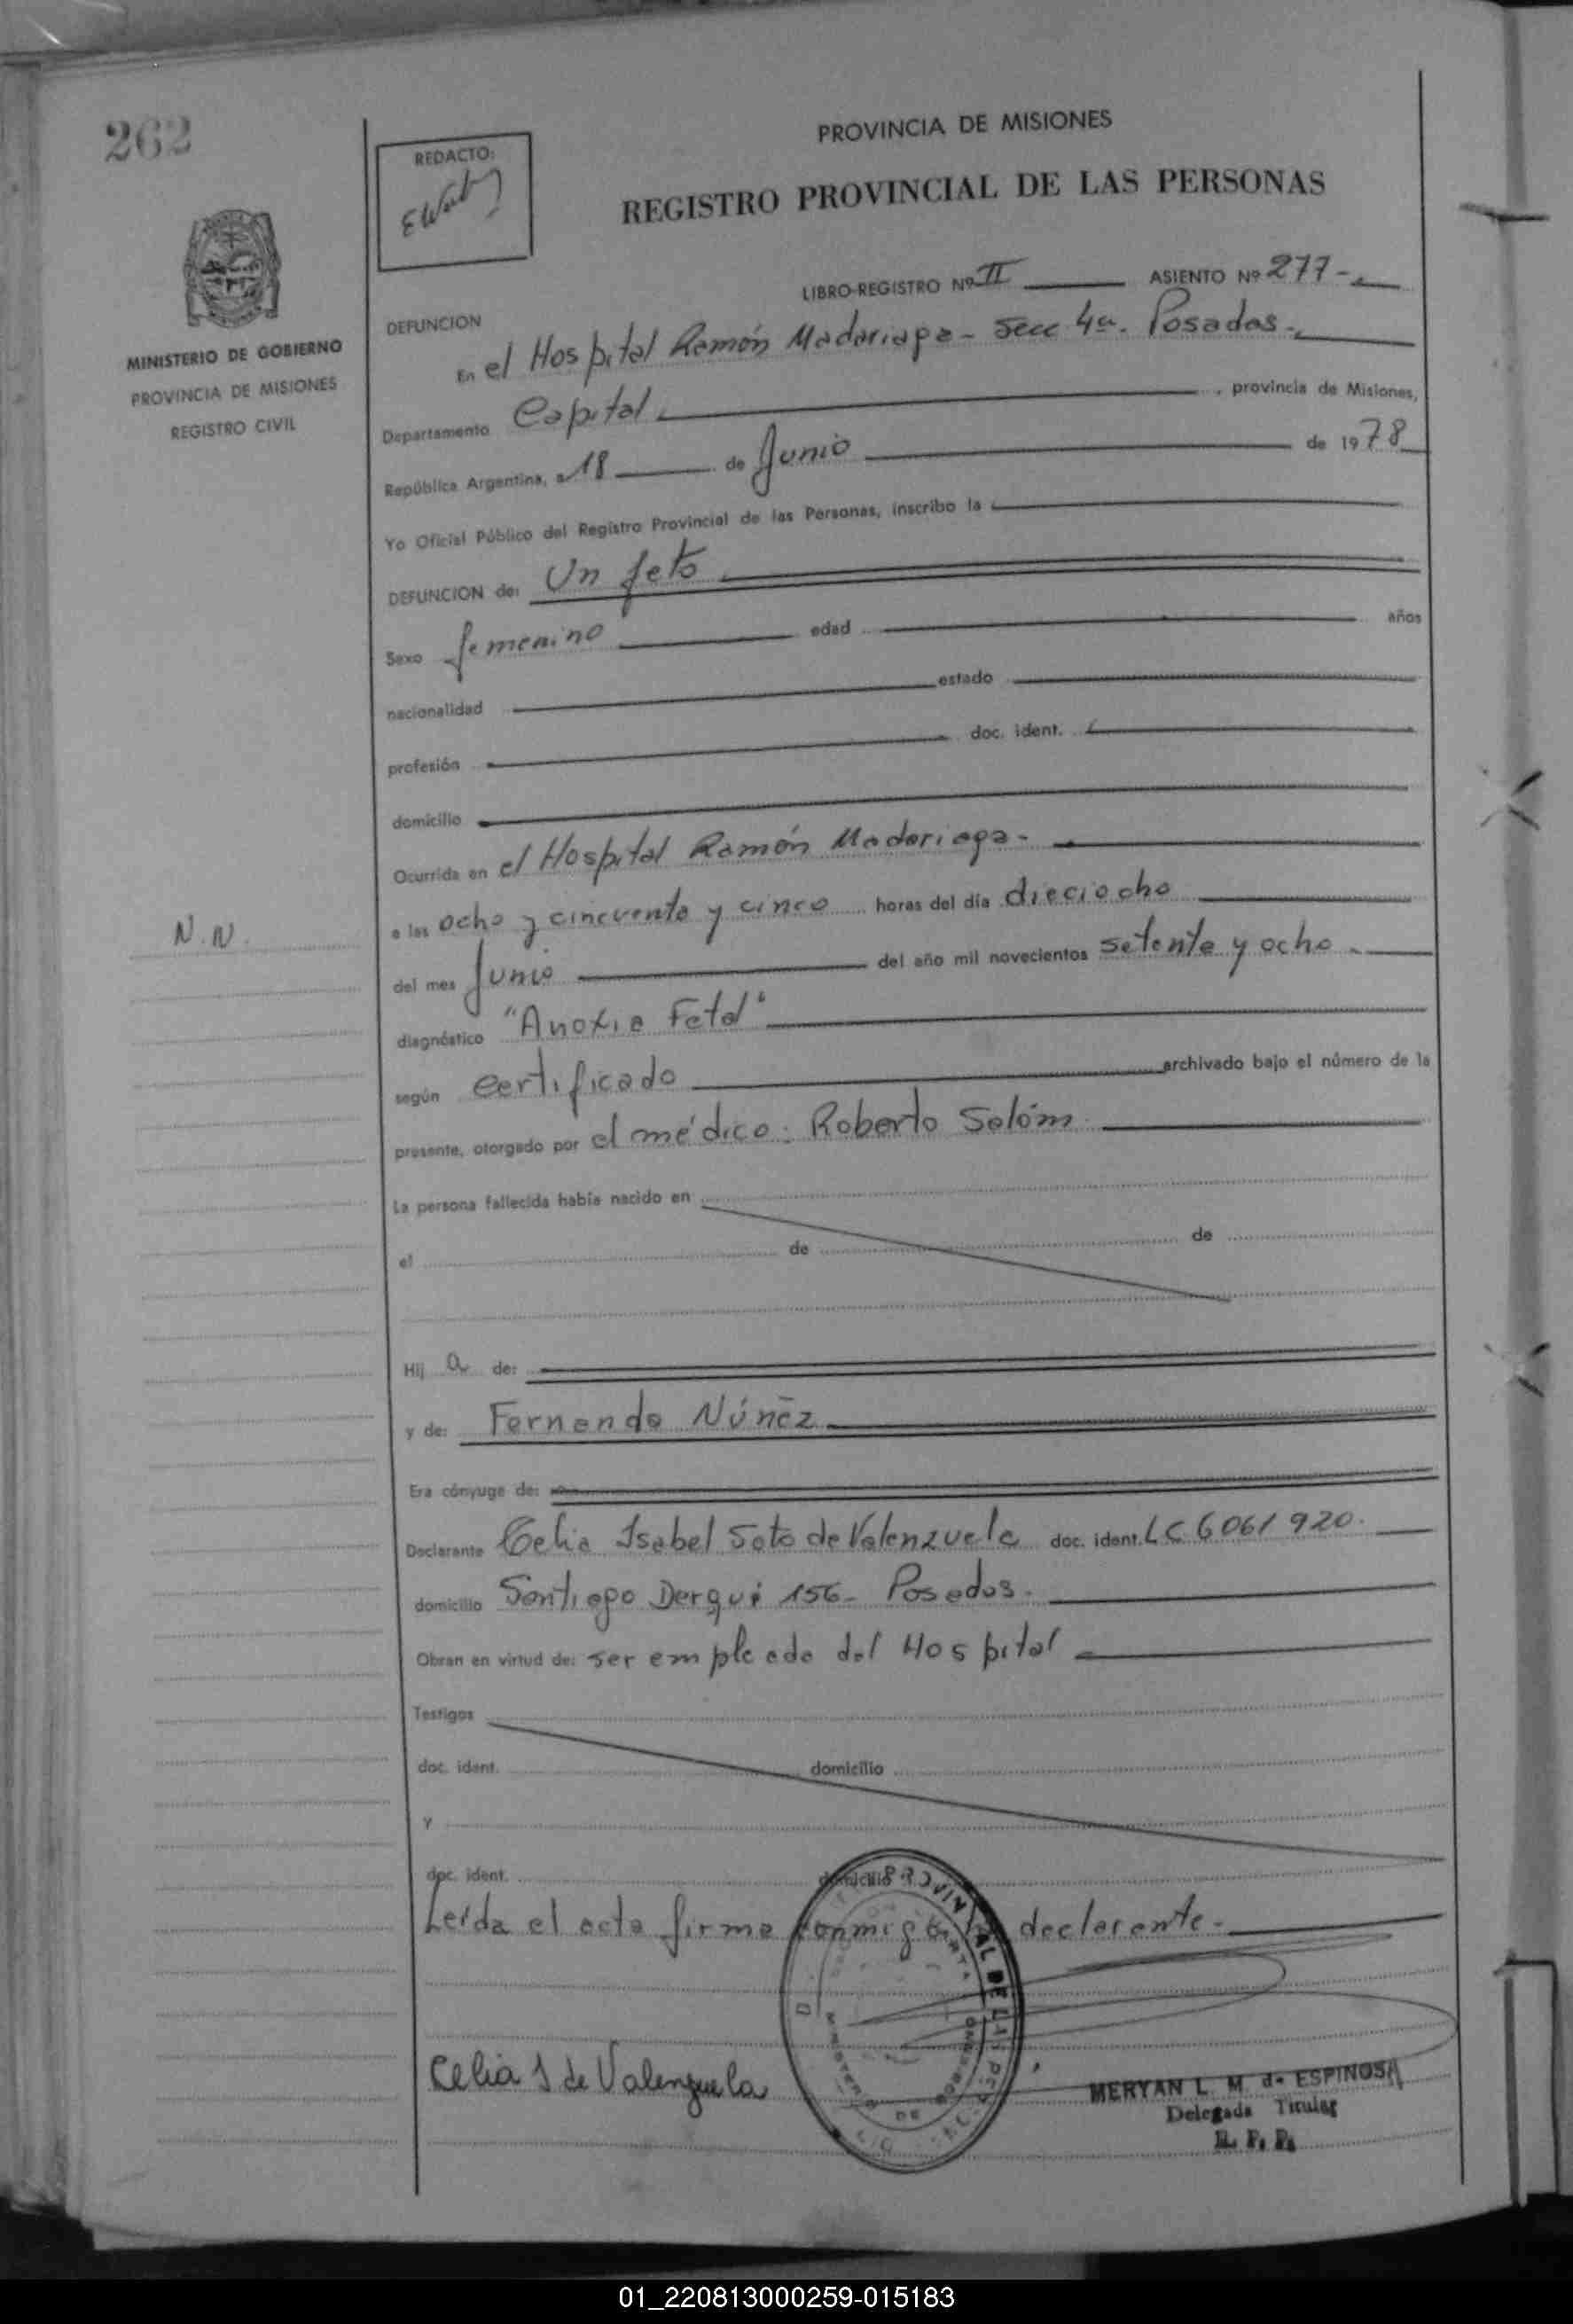 262
PROVINCIA DE MISIONES
REDACTO:
REGISTRO PROVINCIAL DE LAS PERSONAS
LIBRO-REGISTRO Nº II ASIENTO Nº 277-
DEFUNCION
MINISTERIO DE GOBIERNO
PROVINCIA DE MISIONES
REGISTRO CIVIL
En el Hospital Ramón Madariaga - Secc 4a. Posadas.-
Departamento Capital , provincia de Misiones,
República Argentina, a 18 de Junio de 1978
Yo Oficial Público del Registro Provincial de las Personas, inscribo la
DEFUNCION de: Un feto
Sexo femenino edad años
nacionalidad estado
profesión doc. ident.
domicilio
Ocurrida en el Hospital Ramón Madariaga-
a las ocho y cincuenta y cinco horas del día dieciocho
N.N.
del mes Junio del año mil novecientos setenta y ocho.
diagnóstico "Anoxia Fetal"
según certificado archivado bajo el número de la
presente, otorgado por el médico: Roberto Salóm
La persona fallecida había nacido en
el de de
Hij a de:
y de: Fernanda Núñez
Era cónyuge de:
Declarante Celia Isabel Soto de Valenzuela doc. ident. LC 6061920.
domicilio Santiago Derqui 156- Posadas.
Obran en virtud de: ser empleada del Hospital
Testigos
doc. ident. domicilio
y
doc. ident. domicilio
Leída el acta firma conmigo la declarente.
Celia S de Valenzuela
MERYAN L. M. de ESPINOSA
Delegada Titular
R. P. P.
01_220813000259-015183